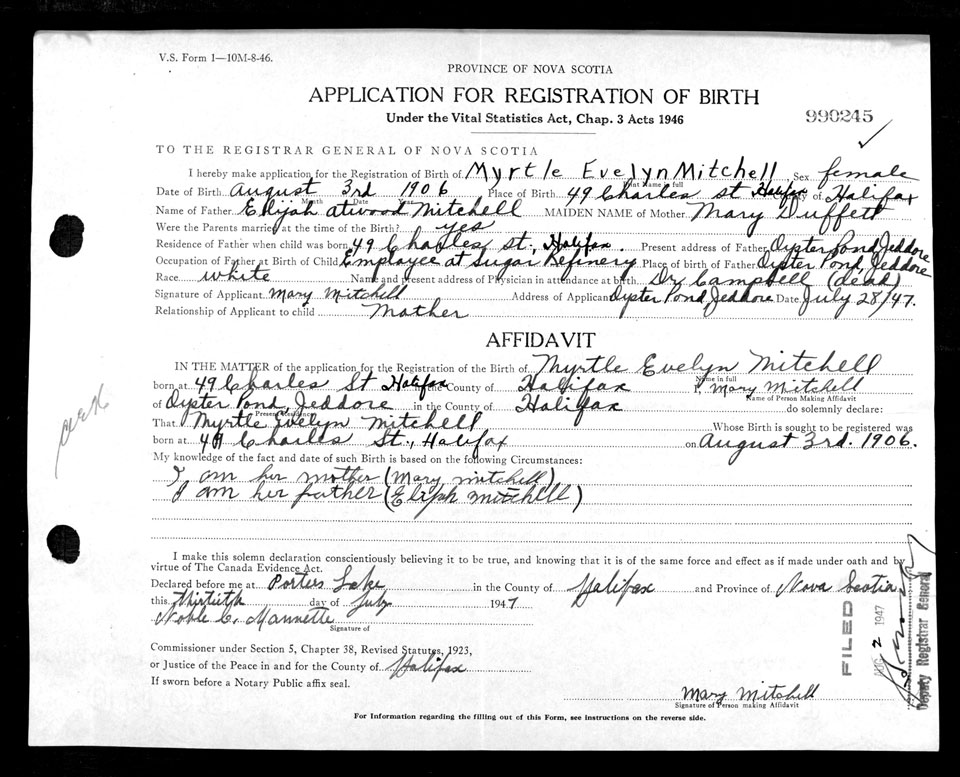 V.S. Form 1—10M-8-46.
PROVINCE OF NOVA SCOTIA
APPLICATION FOR REGISTRATION OF BIRTH
Under the Vital Statistics Act, Chap. 3 Acts 1946
990245
TO THE REGISTRAR GENERAL OF NOVA SCOTIA
I hereby make application for the Registration of Birth of Myrtle Evelyn Mitchell Sex female
Print Name in full
Date of Birth August 3rd 1906 Place of Birth 49 Charles St Halifax of Halifax
Month Date Year
Name of Father Elijah atwood Mitchell MAIDEN NAME of Mother Mary Duffett
Were the Parents married at the time of the Birth? yes
Residence of Father when child was born 49 Charles St., Halifax. Present address of Father Oyster Pond, Jeddore
Occupation of Father at Birth of Child Employee at Sugar Refinery Place of birth of Father Oyster Pond, Jeddore
Race white Name and present address of Physician in attendance at birth Dr Campbell (dead)
Signature of Applicant Mary Mitchell Address of Applicant Oyster Pond, Jeddore Date July 28/47.
Relationship of Applicant to child Mother
AFFIDAVIT
IN THE MATTER of the application for the Registration of the Birth of Myrtle Evelyn Mitchell
Name in full
born at 49 Charles St Halifax in the County of Halifax I, Mary Mitchell
Name of Person Making Affidavit
of Oyster Pond, Jeddore in the County of Halifax do solemnly declare:
Present Residence
That Myrtle Evelyn Mitchell Whose Birth is sought to be registered was
born at 49 Charles St., Halifax on August 3rd. 1906.
My knowledge of the fact and date of such Birth is based on the following Circumstances:
I am her mother (Mary Mitchell)
I am her father (Elijah Mitchell)
I make this solemn declaration conscientiously believing it to be true, and knowing that it is of the same force and effect as if made under oath and by
virtue of The Canada Evidence Act.
Declared before me at Porters Lake in the County of Halifax and Province of Nova Scotia
this Thirtieth day of July 1947
Noble C. Mannette
Signature of
Commissioner under Section 5, Chapter 38, Revised Statutes, 1923,
or Justice of the Peace in and for the County of Halifax
If sworn before a Notary Public affix seal.
Mary Mitchell
Signature of Person making Affidavit
For Information regarding the filling out of this Form, see instructions on the reverse side.
FILED
AUG 2 1947
Deputy Registrar General